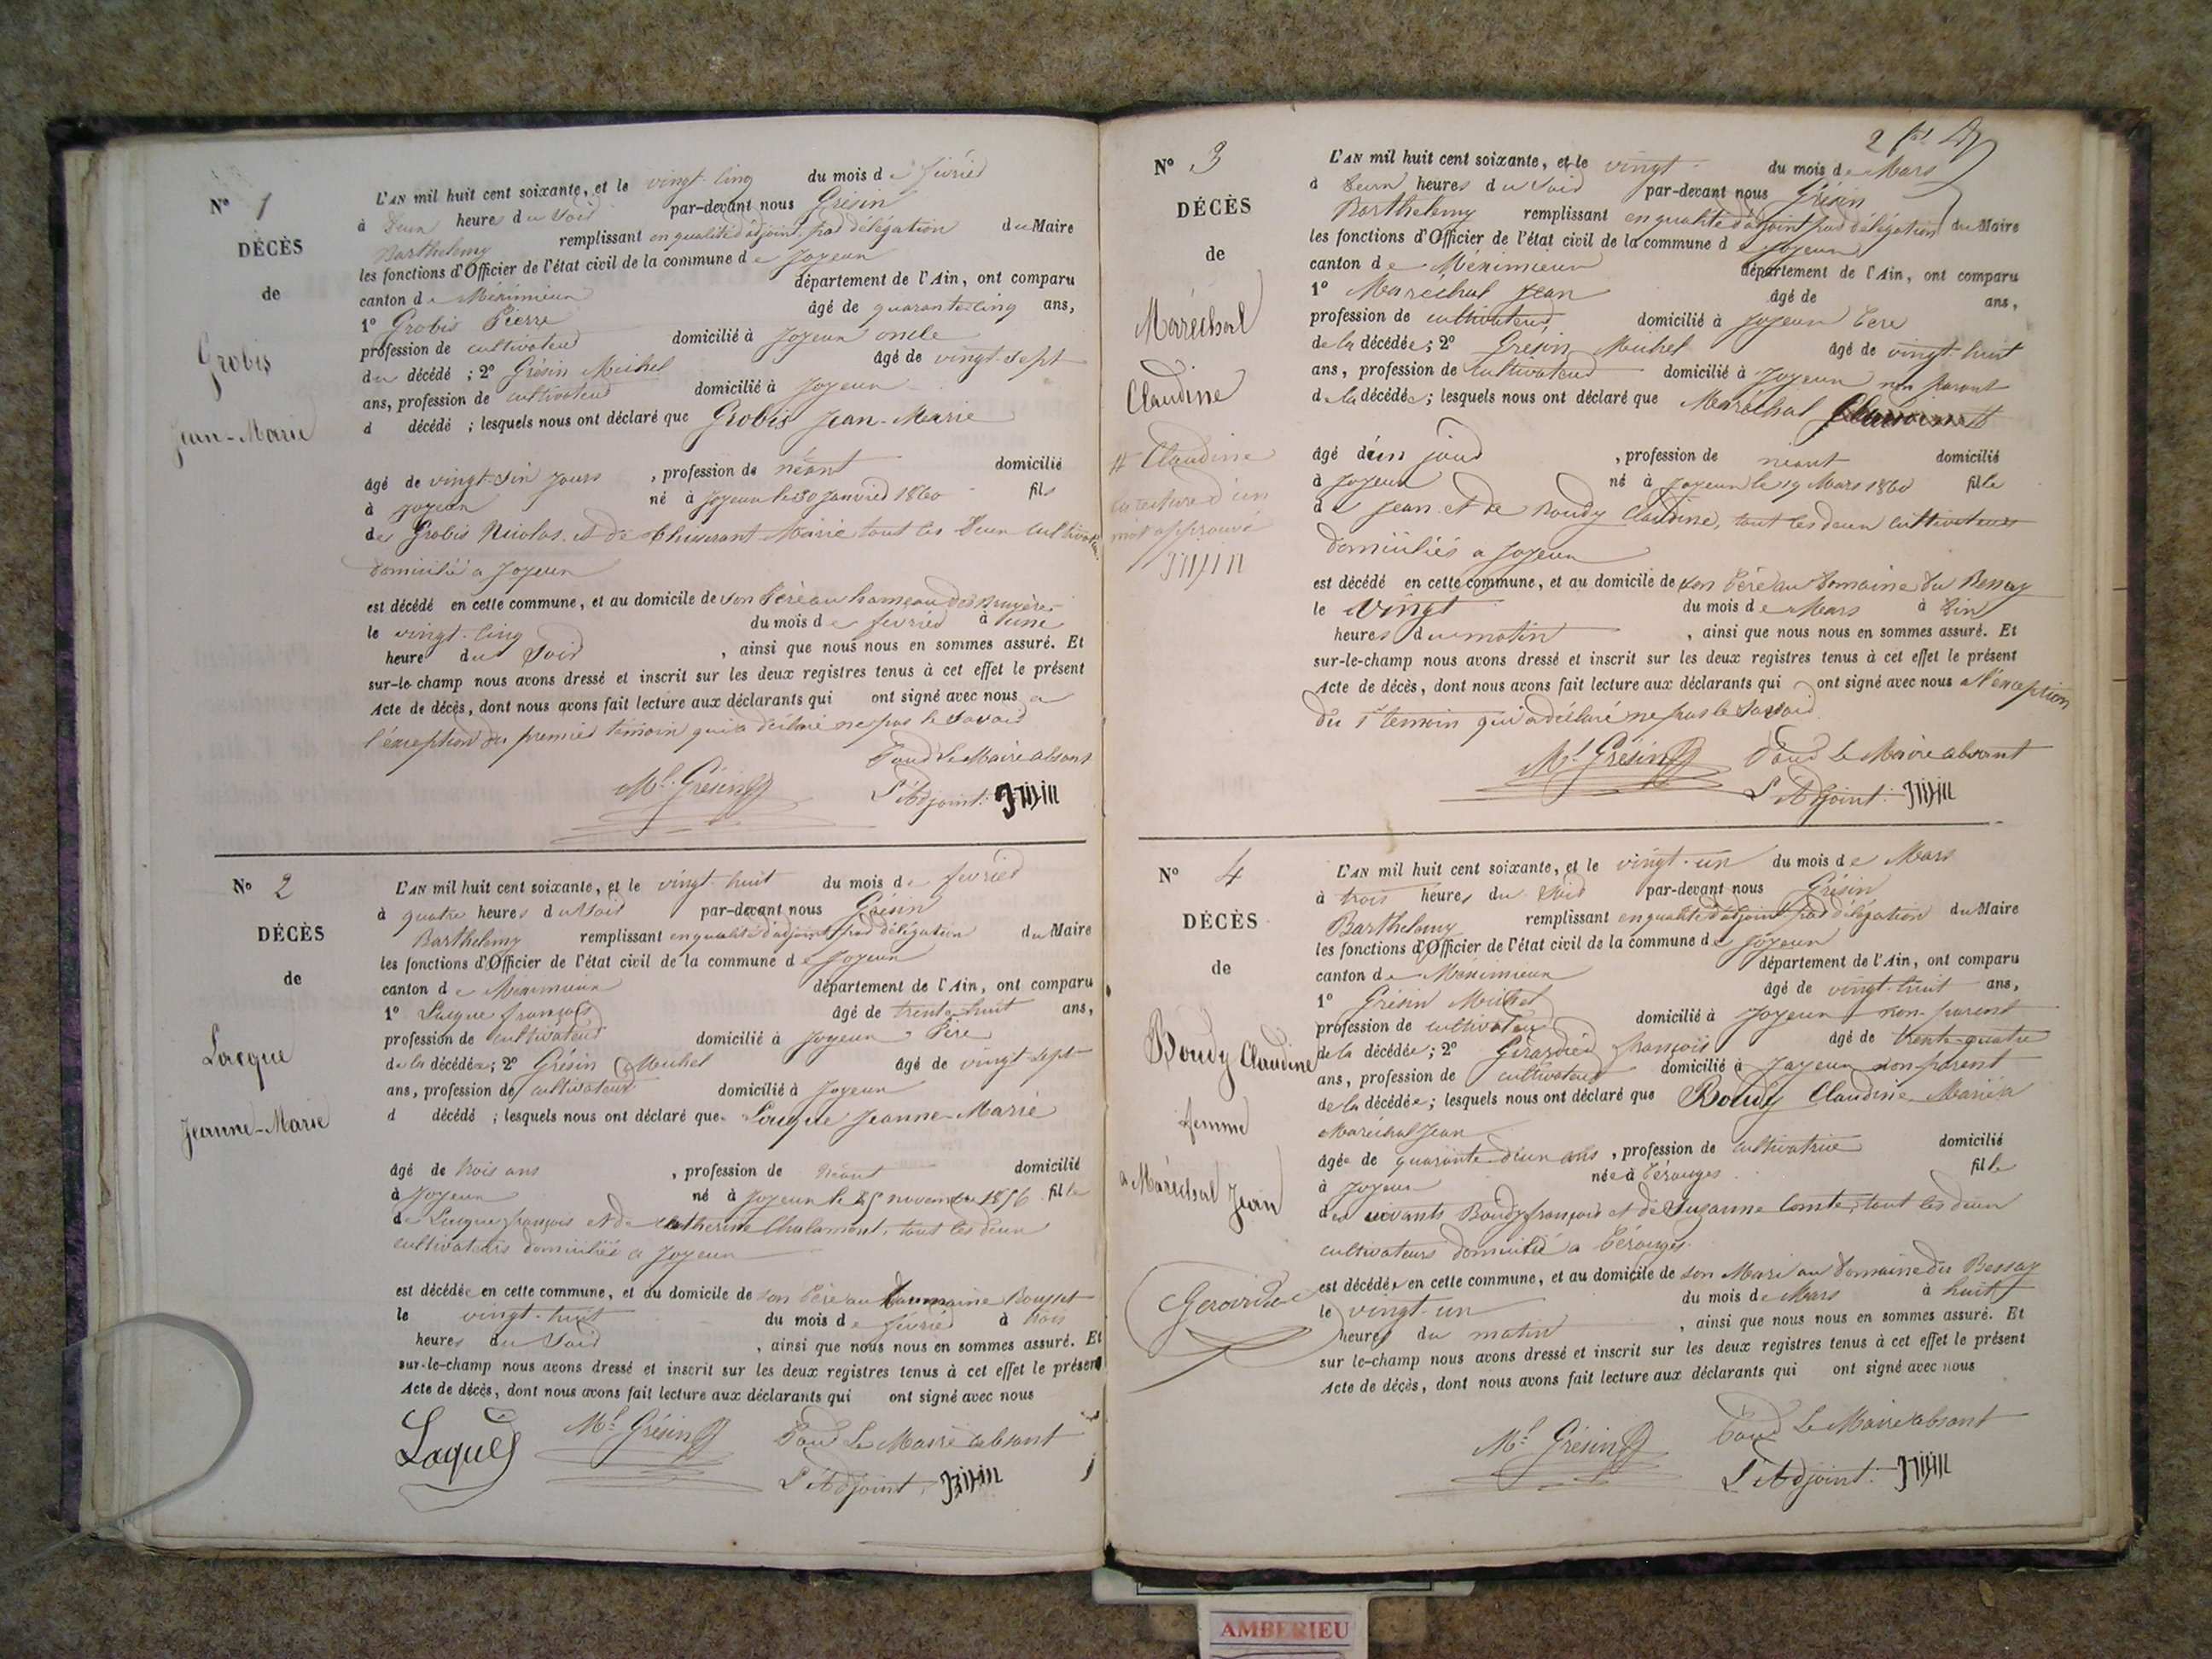 N° 1
DÉCÈS
de
Grobis
Jean-Marie
L'AN mil huit cent soixante, et le vingt-cinq du mois de février
à deux heures du soir par-devant nous Grésin
Barthelemy remplissant en qualité d'adjoint par délégation du Maire
les fonctions d'Officier de l'état civil de la commune de Joyeux
canton de Méximieux département de l'Ain, ont comparu
1° Grobis Pierre âgé de quarante-cinq ans,
profession de cultivateur domicilié à Joyeux oncle
du décédé ; 2° Grésin Michel âgé de vingt-sept
ans, profession de cultivateur domicilié à Joyeux
d décédé ; lesquels nous ont déclaré que Grobis Jean-Marie
âgé de vingt-six jours , profession de néant domicilié
à Joyeux né à Joyeux le 30 Janvier 1860 fils
de Grobis Nicolas et de Marie tout les deux
domicilié a Joyeux
est décédé en cette commune, et au domicile de son Père au hameau des Bruyères
le vingt-cinq du mois de février à une
heure du Soir , ainsi que nous nous en sommes assuré. Et
sur-le champ nous avons dressé et inscrit sur les deux registres tenus à cet effet le présent
Acte de décès, dont nous avons fait lecture aux déclarants qui ont signé avec nous a
l'exception du premier témoin qui a déclaré ne pas le savoir
Pour Le Maire absent
Ml. Grésin L'Adjoint:
N° 2
DÉCÈS
de
Lacque
Jeanne-Marie
L'AN mil huit cent soixante, et le vingt-huit du mois de février
à quatre heures du Soir par-devant nous Grésin
Barthelemy remplissant en qualité d'adjoint par délégation du Maire
les fonctions d'Officier de l'état civil de la commune de Joyeux
canton de Meximieux département de l'Ain, ont comparu
1° Lacque françois âgé de trente-huit ans,
profession de cultivateur domicilié à Joyeux Père
de la décédée; 2° Grésin Michel âgé de vingt-sept
ans, profession de cultivateur domicilié à Joyeux
d décédé ; lesquels nous ont déclaré que Lacque Jeanne-Marie
âgé de trois ans , profession de Néant domicilié
à Joyeux né à Joyeux le 25 novembre 1856 fille
de Lacque françois et de Catherine Chalamont, tout les deux
cultivateurs domiciliés a Joyeux
est décédée en cette commune, et au domicile de son Père au Domaine
le vingt-huit du mois de février à trois
heures du Soir , ainsi que nous nous en sommes assuré. Et
sur-le-champ nous avons dressé et inscrit sur les deux registres tenus à cet effet le présent
Acte de décès, dont nous avons fait lecture aux déclarants qui ont signé avec nous
Laques Ml. Grésin Pour Le Maire absent
L'Adjoint:
N° 3
DÉCÈS
de
Maréchal
Claudine
# Claudine
d'un
mot approuvé
L'AN mil huit cent soixante, et le vingt du mois de Mars
à deux heures du Soir par-devant nous Grésin
Barthelemy remplissant en qualité d'adjoint par délégation du Maire
les fonctions d'Officier de l'état civil de la commune de Joyeux
canton de Méximieux département de l'Ain, ont comparu
1° Maréchal Jean âgé de ans,
profession de cultivateur domicilié à Joyeux Père
de la décédée; 2° Grésin Michel âgé de vingt-huit
ans, profession de cultivateur domicilié à Joyeux non parent
de la décédée; lesquels nous ont déclaré que Maréchal #
âgé d'un jour , profession de néant domicilié
à Joyeux né à Joyeux le 19 Mars 1860 fille
de Jean et de Boudy Claudine, tout les deux cultivateurs
domiciliés a Joyeux
est décédé en cette commune, et au domicile de son Père au Domaine du Bessay
le vingt du mois de Mars à
heures du matin , ainsi que nous nous en sommes assuré. Et
sur-le-champ nous avons dressé et inscrit sur les deux registres tenus à cet effet le présent
Acte de décès, dont nous avons fait lecture aux déclarants qui ont signé avec nous a l'exception
du 1er témoin qui a déclaré ne pas le savoir
Ml. Grésin Pour Le Maire absent
L'Adjoint:
N° 4
DÉCÈS
de
Boudy Claudine
femme
a Maréchal Jean
L'AN mil huit cent soixante, et le vingt-un du mois de Mars
à trois heures du Soir par-devant nous Grésin
Barthelemy remplissant en qualité d'adjoint par délégation du Maire
les fonctions d'Officier de l'état civil de la commune de Joyeux
canton de Méximieux département de l'Ain, ont comparu
1° Grésin Michel âgé de vingt-huit ans,
profession de cultivateur domicilié à Joyeux non parent
de la décédée; 2° françois âgé de trente-quatre
ans, profession de cultivateur domicilié à Joyeux non parent
de la décédée; lesquels nous ont déclaré que Boudy Claudine Mariée a
Maréchal Jean
âgée de quarante deux ans , profession de cultivatrice domicilié
à Joyeux née à Pérouges fille
des vivants Boudy françois et de Suzanne Comte, tout les deux
cultivateurs domicilié a Pérouges.
est décédée en cette commune, et au domicile de son Mari au Domaine du Bessay
le vingt-un du mois de Mars à huit
heures du matin , ainsi que nous nous en sommes assuré. Et
sur le-champ nous avons dressé et inscrit sur les deux registres tenus à cet effet le présent
Acte de décès, dont nous avons fait lecture aux déclarants qui ont signé avec nous
Ml. Grésin Pour Le Maire absent
L'Adjoint:
AMBERIEU